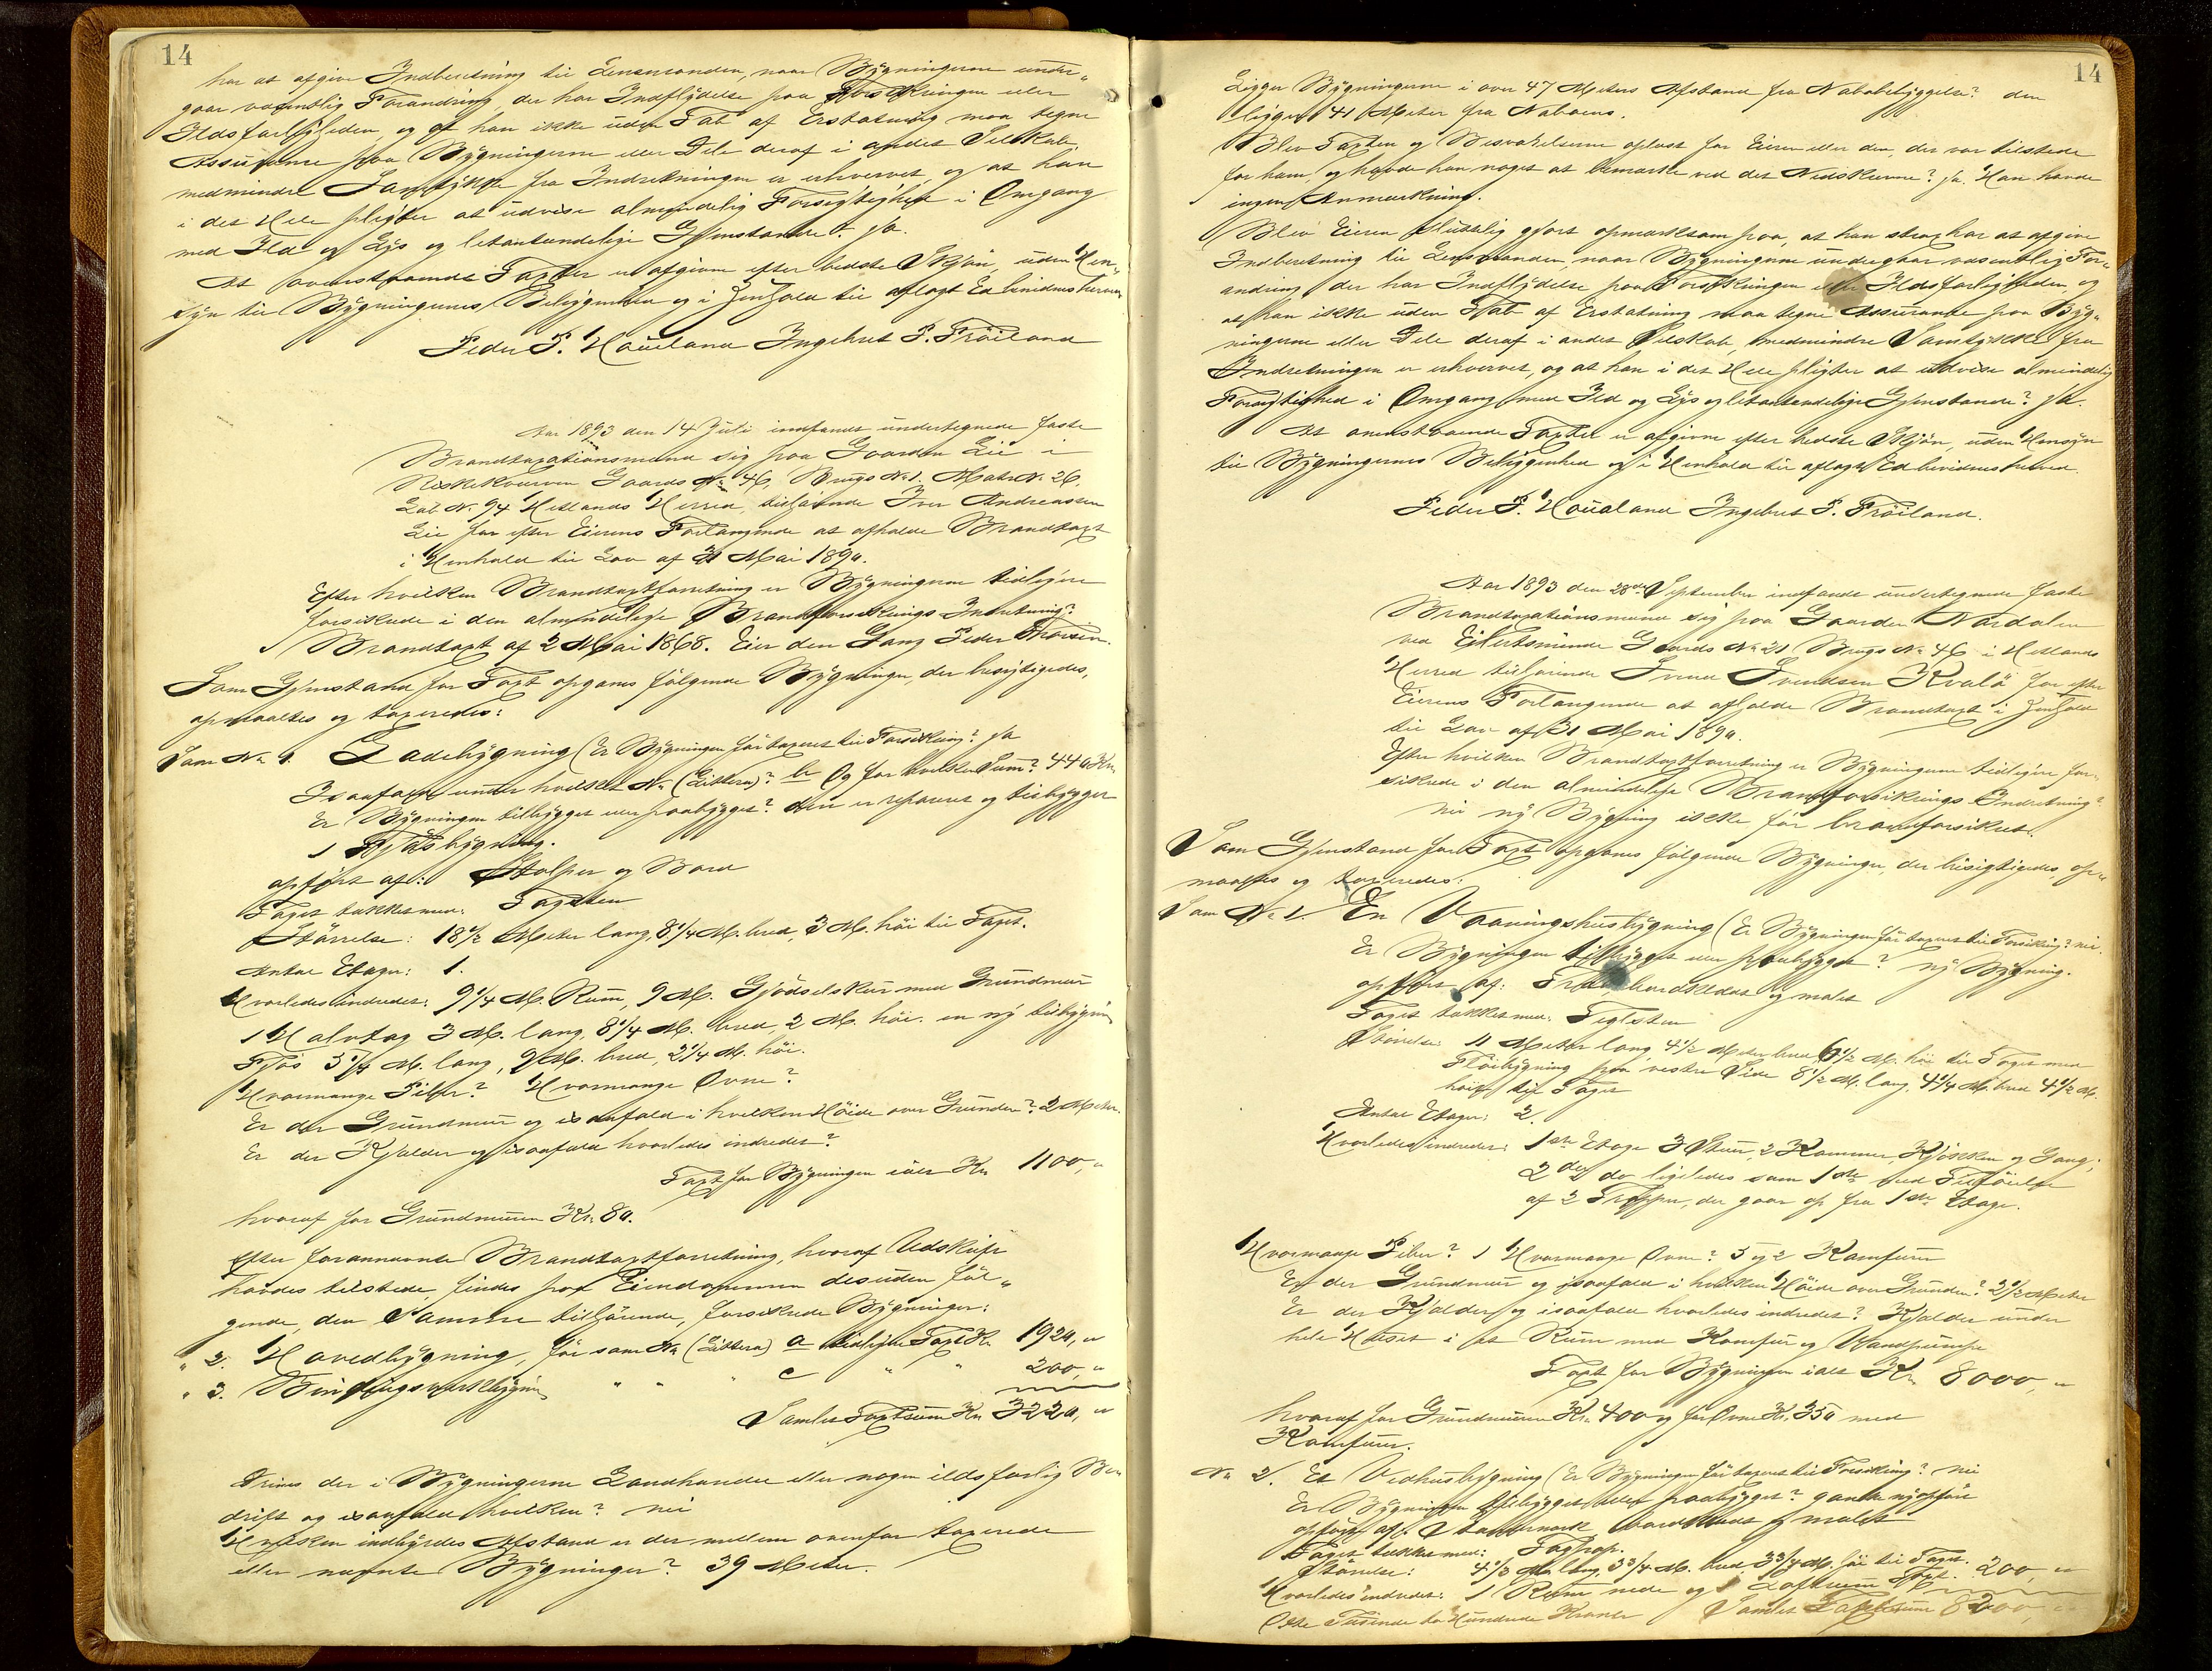 14
har at afgive Indberetning til Lensmanden, naar Bygningerne under-
gaar væsentlig Forandring der har Indflydelse paa Forsikringen eller
Ildsfarligheden, og at han ikke uden Tab af Erstatning maa tegne
Assurance paa Bygningerne eller Dele deraf i andet Selskab,
medmindre Samtykke fra Indretningen er erhvervet, og at han
i det Hele pligter at udvise almindelig Forsigtighed i Omgang
med Ild og Lys og letantændelige Gjenstande? Ja.
At ovenstaaende Taxter er afgivne efter bedste Skjøn, uden Hen-
syn til Bygningernes Beliggenhed og i Henhold til aflagt Ed bevidnes herved
Peder P. Haueland Ingebret P. Fröiland
Aar 1893 den 14 Juli indfandt undertegnede faste
Brandtaxationsmænd sig paa Gaarden Lie i
Riskekvarven Gaards No 46, Brugs No 1. Matr No 26.
Löb No 94 Hetlands Herred, tilhörende Iver Andreassen
Lie for efter Eierens Forlangende at afholde Brandtaxt
i Henhold til Lov af 31 Mai 1890.
Efter hvilken Brandtaxtforretning er Bygningerne tidligere
forsikrede i den almindelige Brandforsikrings Indretning?
Brandtaxt af 2 Mai 1868. Eier den Gang Peder
Som Gjenstand for Taxt opgaves følgende Bygninger, der besigtigedes,
opmaaltes og taxeredes:
Som No 1. Ladebygning (Er Bygningen før taxeret til Forsikring? Ja
Isaafald under hvilket No (Littera)? b Og for hvilken Sum? 440 Kr
Er Bygningen tilbygget eller paabygget? den er repareret og tilbygget
1 Fjösbygning.
opført af: Stolper og Bord
Taget tækket med: Tagsten
Størrelse: 18 1/2 Meter lang, 8 1/4 M. bred, 3 M. höi til Taget.
Antal Etager: 1.
Hvorledes indredet: 9 1/4 M. Rum, 9 M. Gjödselskur med Grundmur
1 Halvtag 3 M. lang, 8 1/4 M. bred, 2 M. höi. en ny tilbygning
Fjös 3 1/4 M. lang, 9 M. bred, 2 1/4 M. höi.
Hvormange Piber? Hvormange Ovne?
Er der Grundmur og isaafald i hvilken Höide over Grunden? 2 Meter.
Er der Kjælder og isaafald hvorledes indredet?
Taxt for Bygningen ialt Kr 1100, "
hvoraf for Grundmuren Kr. 80.
Efter forannævnte Brandtaxtforretning, hvoraf Udskrift
havdes tilstede, findes paa Eiendommen desuden föl-
gende, den Samme tilhörende, forsikrede Bygninger:
" 2. Hovedbygning, för som No (Littera) a tidligere Taxt Kr. 1920, "
" 3. Bindingsværksbygning " " " c " " 200, "
Samlet Taxtsum Kr 3220, "
Drives der i Bygningerne Landhandel eller nogen ildsfarlig Be-
drift og isaafald hvilken? nei
Hvilken indbyrdes Afstand er der mellem ovenfor taxerede
eller nævnte Bygninger? 39 Meter.
14
Ligger Bygningerne i over 47 Meters Afstand fra Nabobebyggelse? den
ligger 41 Meter fra Naboens.
Blev Taxten og Besvarelserne oplæst for Eieren eller den, der var tilstede
for ham, og havde han noget at bemærke ved det Nedskrevne? Ja. Han havde
ingen Anmærkning.
Blev Eieren sluttelig gjort opmærksom paa, at han strax har at afgive
Indberetning til Lensmanden, naar Bygningerne undergaar væsentlig For-
andring der har Indflydelse paa Forsikringen eller Ildsfarligheden, og
at han ikke uden Tab af Erstatning maa tegne Assurance paa Byg-
ningerne eller Dele deraf i andet Selskab, medmindre Samtykke fra
Indretningen er erhvervet, og at han i det Hele pligter at udvise almindelig
Forsigtighed i Omgang med Ild og Lys og letantændelige Gjenstande? Ja.
At ovenstaaende Taxter er afgivne efter bedste Skjön, uden Hensyn
til Bygningernes Beliggenhed og i Henhold til aflagt Ed bevidnes herved.
Peder P. Haueland Ingebret P. Fröiland.
Aar 1893 den 28de September indfandt undertegnede faste
Brandtaxationsmænd sig paa Gaarden Nordalen
ved Eilertsminde Gaards No 21 Brugs No 46 i Hetlands
Herred tilhörende Svend Svendsen Kvalö for efter
Eierens Forlangende at afholde Brandtaxt i Henhold
til Lov af 31 Mai 1890.
Efter hvilken Brandtaxtforretning er Bygningerne tidligere for-
sikrede i den almindelige Brandforsikrings Indretning?
nei ny Bygning ikke för brandforsikret.
Som Gjenstand for Taxt opgaves følgende Bygninger, der besigtigedes, op-
maaltes og taxeredes:
Som No 1. En Vaaningshusbygning (Er Bygningen för taxeret til Forsikring? nei.
Er Bygningen tilbygget eller paabygget? ny Bygning.
opfört af: Træ, bordklædt og malet
Taget tækket med: Teglsten
Störrelse: 11 Meter lang, 4 1/2 Meter bred 6 1/2 M. höi til Taget med
Flöibygning paa vestre Side 8 1/2 M. lang, 4 1/4 M. bred 4 1/2 M.
höi til Taget
Antal Etager: 2.
Hvorledes indredet: 1ste Etage 3 Stuer, 2 Kammer, Kjökken og Gang;
2den do ligeledes som 1ste med Tilföielse
af 2 Trapper, der gaar op fra 1ste Etage.
Hvormange Piber? 1 Hvormange Ovne? 5 og 2 Komfurer
Er der Grundmur og isaafald i hvilken Höide over Grunden? 2 1/2 Meter
Er der Kjælder og isaafald hvorledes indredet? Kjælder under
hele Huset i et Rum med Komfur og Vandpumpe
Taxt for Bygningen ialt Kr. 8000, "
hvoraf for Grundmuren Kr. 400 og for Ovne Kr. 350 med
Komfurer.
No 2. Et Vedhusbygning (Er Bygningen för taxeret til Forsikring? nei
Er Bygningen tilbygget eller paabygget? ganske nyopfört
opfört af: Stolperværk bordklædt og malet
Taget tækket med: Tagpap.
Störrelse: 4 1/2 M. lang, 3 3/4 M. bred, 3 3/4 M. höi til Taget. 200, "
Hvorledes indredet: 1 Rum nede og 1 Loftrum
Otte Tusinde to Hundrede Kroner Samlet Taxtsum 8200, "